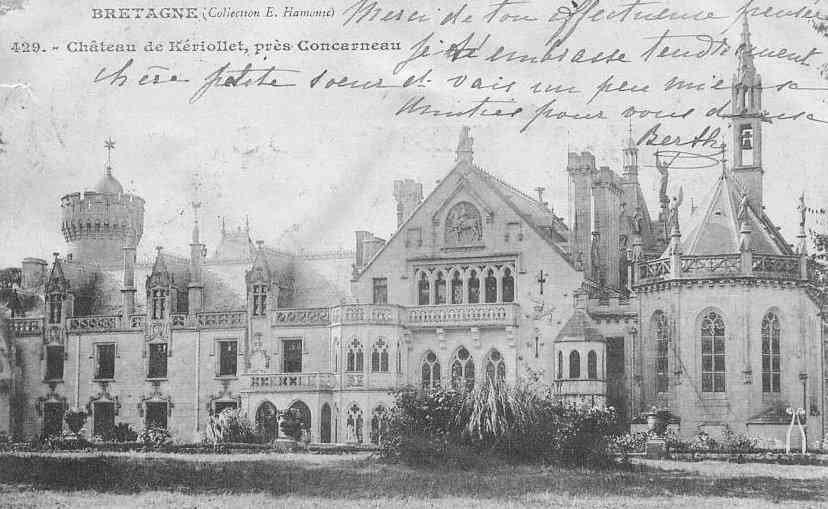 BRETAGNE (Collection E. Hamonic)
429. - Château de Kériollet, près Concarneau
Merci de ton affectueuse pensée
je t'embrasse tendrement
chère petite soeur et vais un peu mieux
Amitiés pour vous deux
Berthe